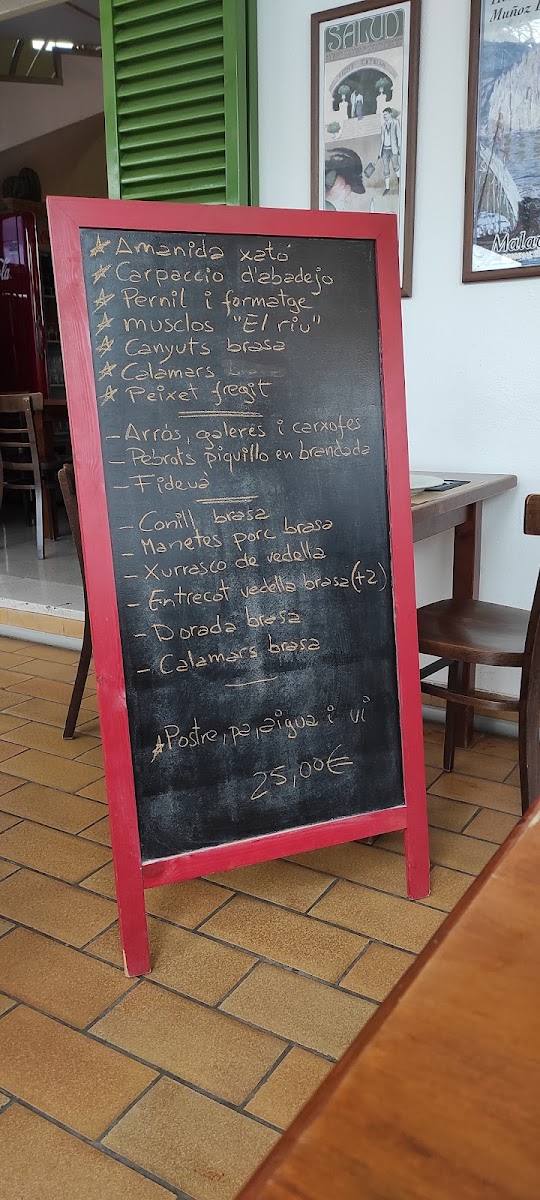 SALUD
Muñoz
☆ Amanida xató
☆ Carpaccio d'abadejo
☆ Pernil i formatge
☆ musclos "El riu"
☆ Canyuts brasa
☆ Calamars
☆ Peixet fregit
- Arròs, galeres i carxofes
- Pebrots piquillo en brandada
- Fideuà
- Conill brasa
- Manetes porc brasa
- Xurrasco de vedella
- Entrecot vedella brasa (+2)
- Dorada brasa
- Calamars brasa
☆ Postre, pa, aigua i vi
25,00€